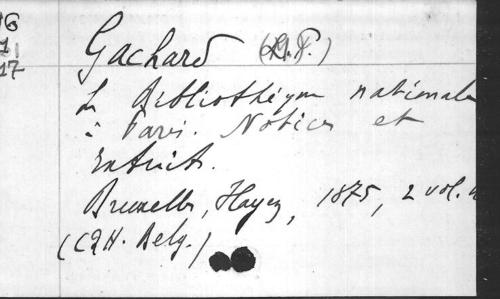 16
1
17
Gachard (L. P.)
La Bibliothèque nationale
à Paris. Notices et
Extraits.
Bruxelles, Hayez, 1875, 2 vol.
(C R H. Belg.)